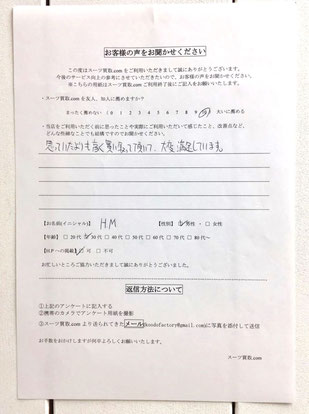 お客様の声をお聞かせください
この度はスーツ買取.comをご利用いただきまして誠にありがとうございます。
今後のサービス向上の参考にさせていただきたいので、お客様の声をお聞かせください。
※こちらの用紙はスーツ買取.comご利用終了後にご記入をお願いいたします。
・スーツ買取.comを友人、知人に薦めますか?
まったく薦めない / 0 1 2 3 4 5 6 7 8 9 10 / 大いに薦める
・当店をご利用いただく前に思ったことや実際にご利用いただいて感じたこと、改善点など、
どんな些細なことでも結構ですのでお聞かせください。
思っていたよりも高く買い取って頂いて、大変満足しています。
【お名前(イニシャル)】 H.M 【性別】 ☑男性・□女性
【年齢】 □20代 ☑30代 □40代 □50代 □60代 □70代 □80代~
【HPへの掲載】 ☑可 □不可
お忙しいところご協力いただきまして誠にありがとうございました。
返信方法について
①上記のアンケートに記入する
②携帯のカメラでアンケート用紙を撮影
③スーツ買取.comより送られてきたメール(koodofactory@gmail.com)に写真を添付して送信
お手数をおかけしますが何卒よろしくお願いいたします。
スーツ買取.com